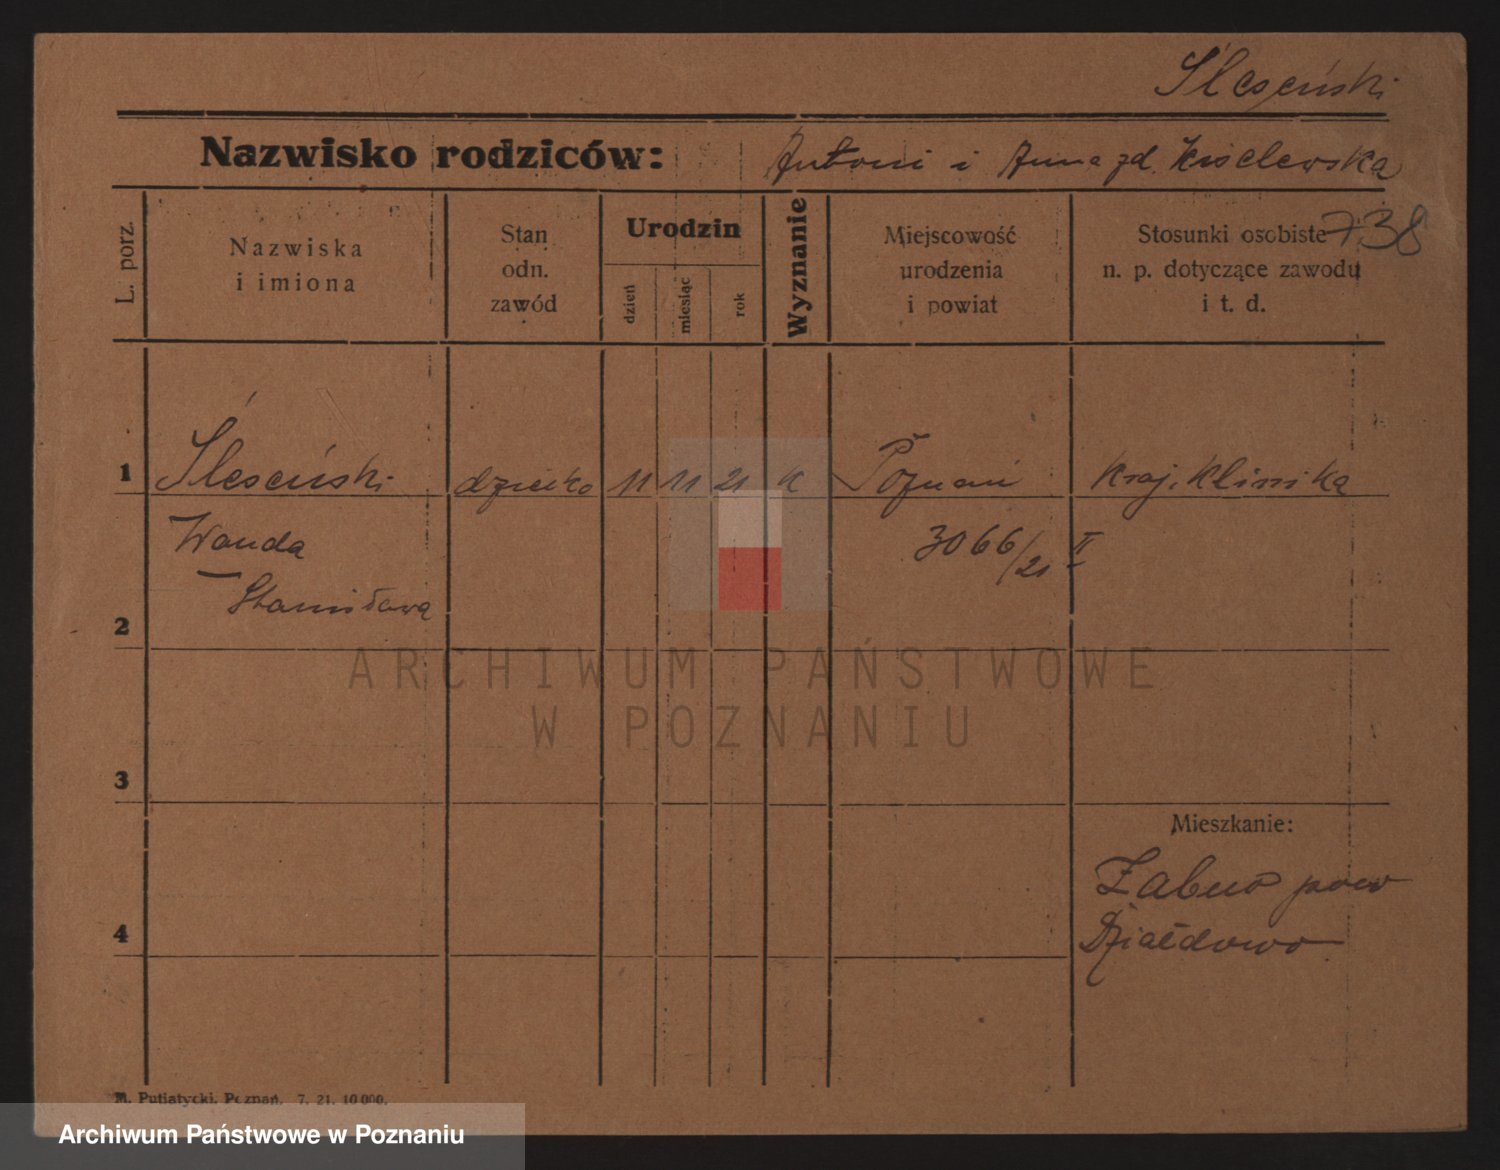 Śleseński
Nazwisko rodziców: Antoni i Anna zd. Kisielewska
738
L. porz.
Nazwiska
i imiona
Stan
odn.
zawód
Urodzin
dzień
miesiąc
rok
Wyznanie
Miejscowość
urodzenia
i powiat
Stosunki osobiste
n. p. dotyczące zawodu
i t. d.
1 Śleseński dziecko 11 11 21 k Poznań Kraj. Klinika
Wanda 3066/21 II
Stanisława
2
3
4
Mieszkanie:
Żabno pow
Działdowo
M. Putiatycki. Poznań. 7. 21. 10 000.
ARCHIWUM PAŃSTWOWE
W POZNANIU
Archiwum Państwowe w Poznaniu